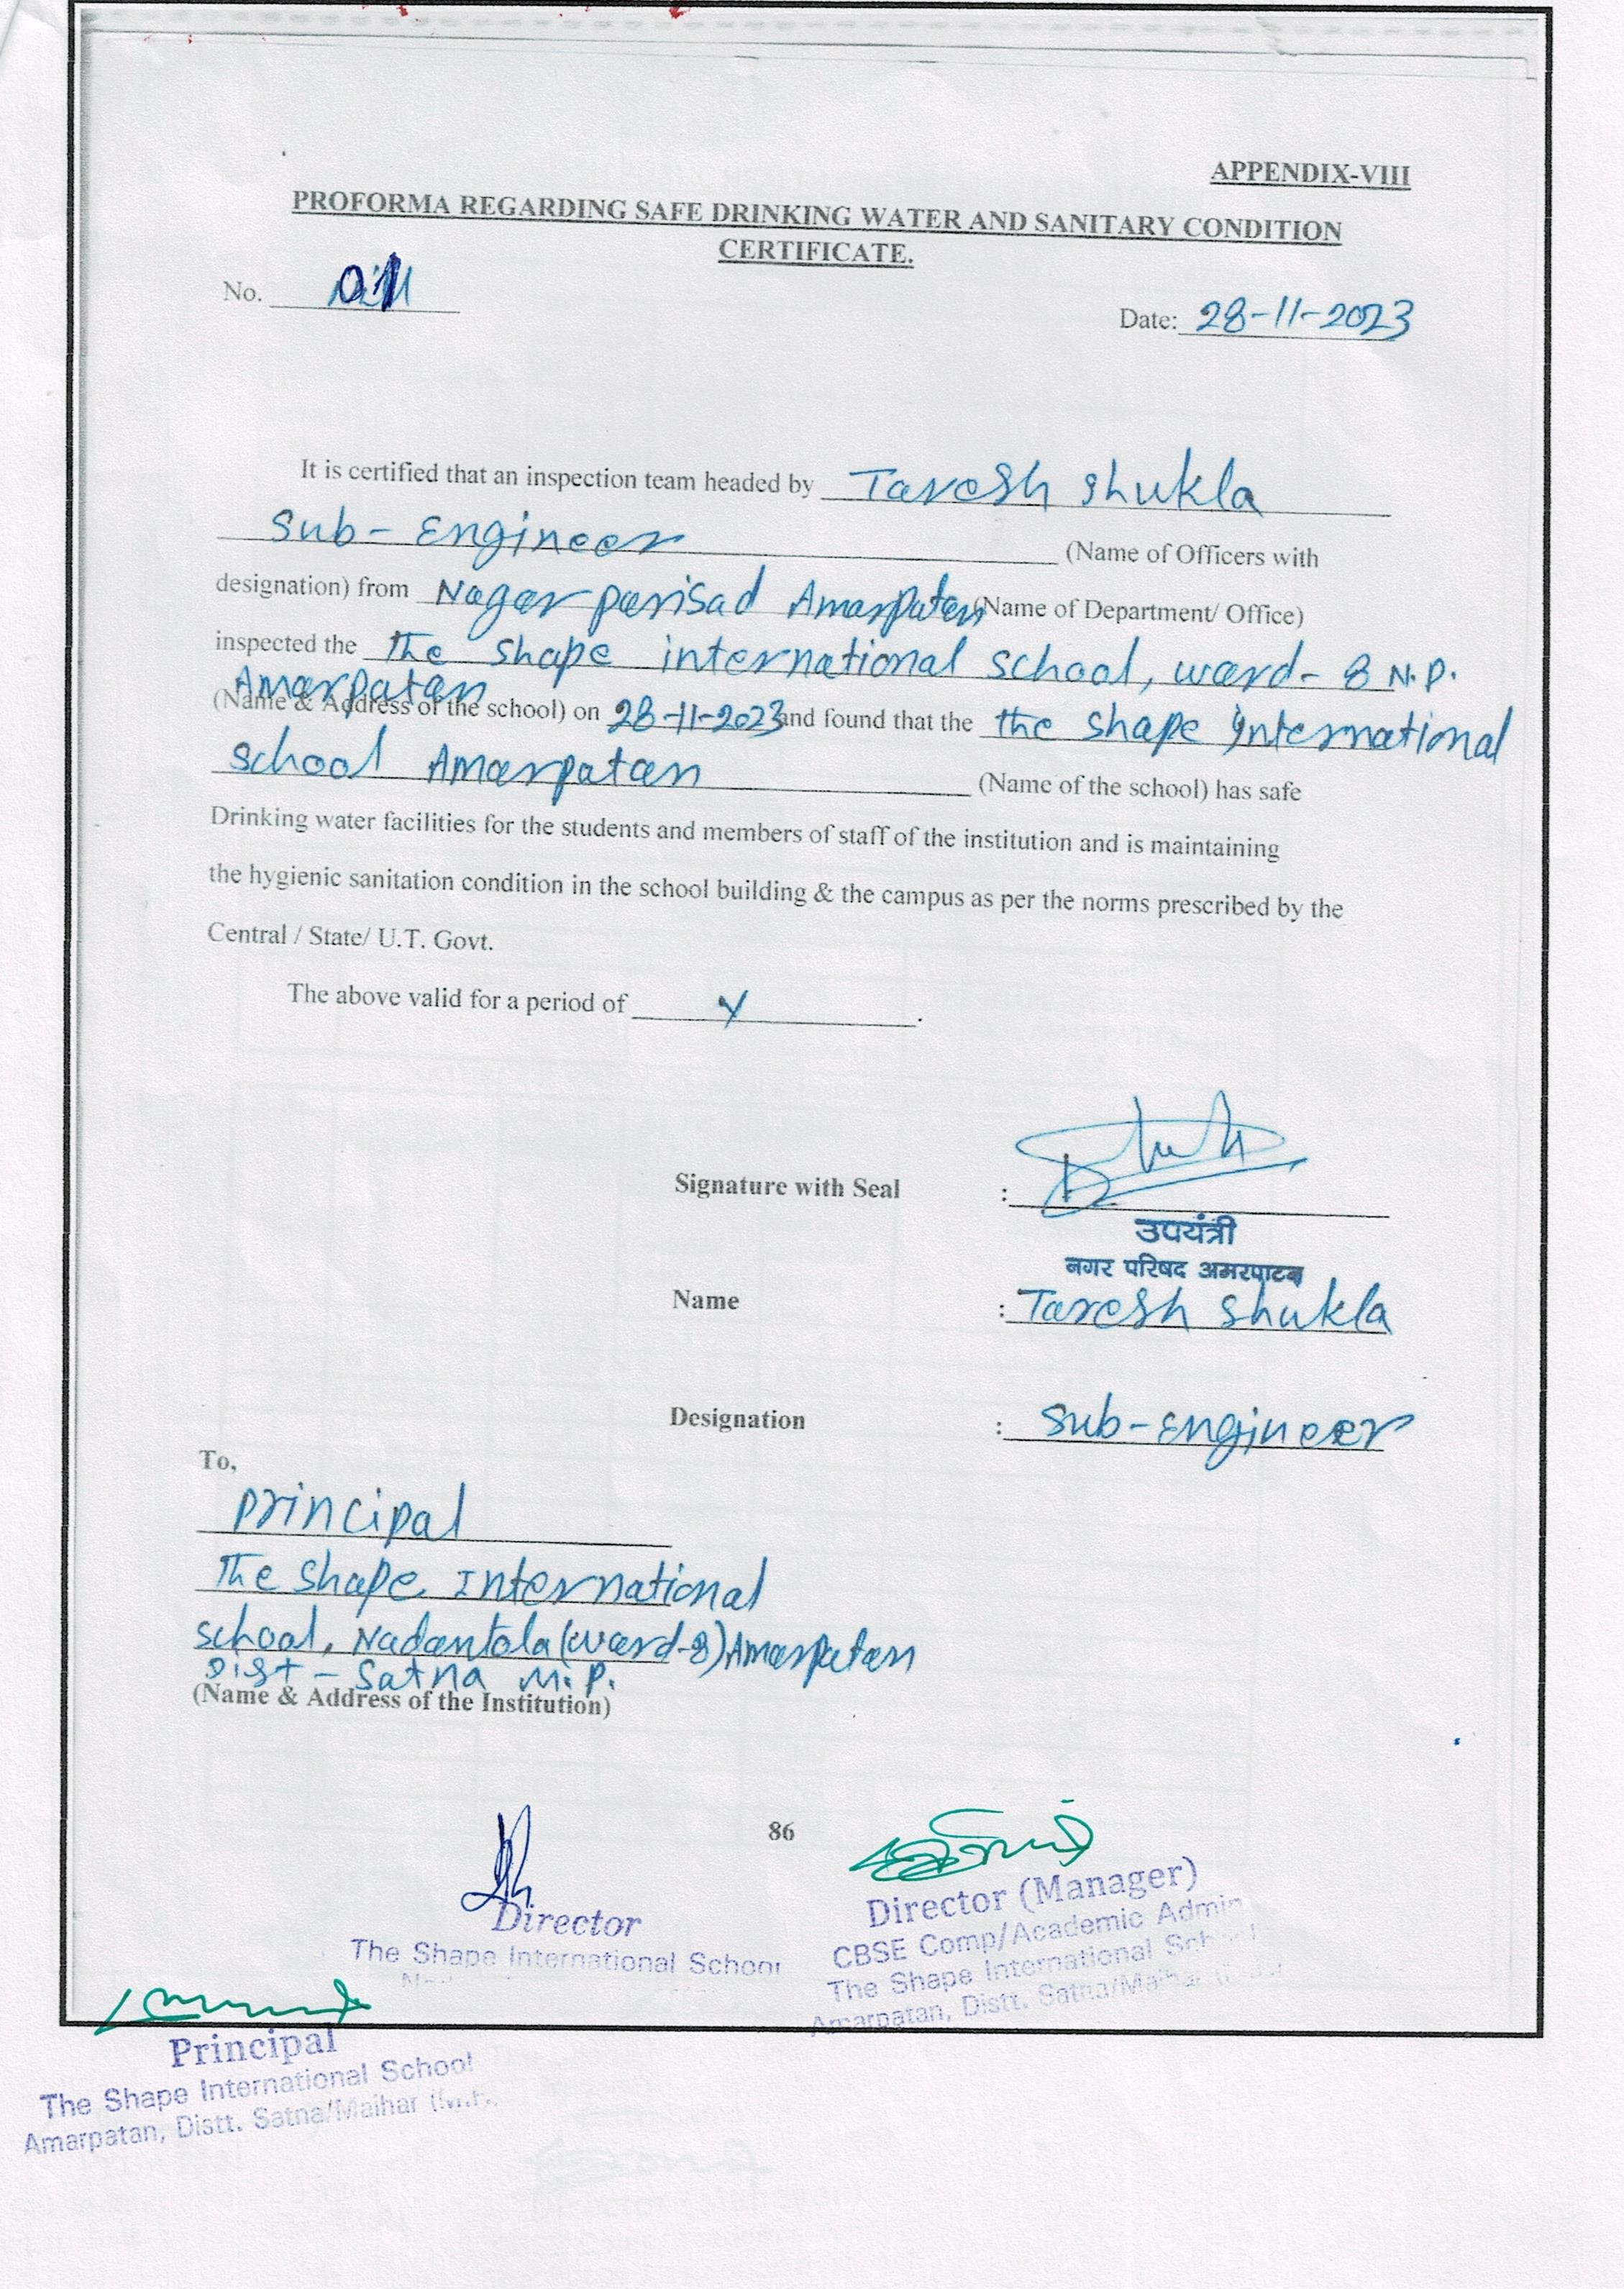 APPENDIX-VIII
PROFORMA REGARDING SAFE DRINKING WATER AND SANITARY CONDITION
CERTIFICATE.
No.
Date: 28-11-2023
It is certified that an inspection team headed by Taresh Shukla
Sub-Engineer (Name of Officers with
designation) from Nagar parisad Amarpatan (Name of Department/ Office)
inspected the The Shape international School, ward-8 N.P.
Amarpatan
(Name & Address of the school) on 28-11-2023 and found that the the shape international
School Amarpatan (Name of the school) has safe
Drinking water facilities for the students and members of staff of the institution and is maintaining
the hygienic sanitation condition in the school building & the campus as per the norms prescribed by the
Central / State/ U.T. Govt.
The above valid for a period of .
Signature with Seal :
उपयंत्री
नगर परिषद अमरपाटन
Name : Taresh Shukla
Designation : Sub-Engineer
To,
Principal
The Shape International
School, Nadantola (ward-8) Amarpatan
Dist - Satna M.P.
(Name & Address of the Institution)
86
Director
The Shape International School
Director (Manager)
CBSE Comp/Academic Admin
The Shape International School
Amarpatan, Distt. Satna/Maihar
Principal
The Shape International School
Amarpatan, Distt. Satna/Maihar (M.P.